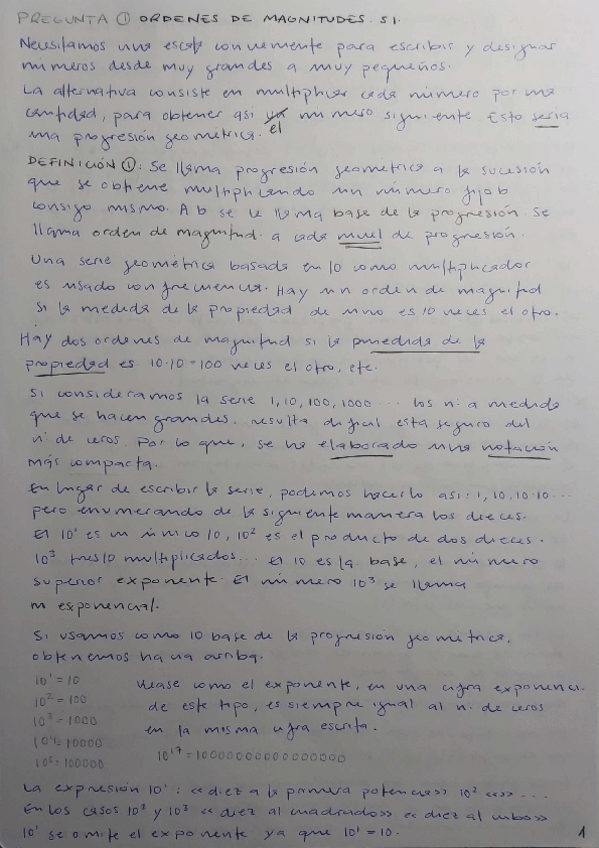 PREGUNTA ① ORDENES DE MAGNITUDES. SI.
Necesitamos una escala conveniente para escribir y designar
números desde muy grandes a muy pequeños.
La alternativa consiste en multiplicar cada número por una
cantidad, para obtener asi el número siguiente. Esto seria
una progresión geométrica.
DEFINICIÓN ①: Se llama progresión geometrica a la sucesión
que se obtiene multiplicando un número fijo b
consigo mismo. A b se le llama base de la progresión. Se
llama orden de magnitud a cada nivel de progresión.
Una serie geométrica basada en 10 como multiplicador
es usado con frecuencia. Hay un orden de magnitud
si la medida de la propiedad de uno es 10 veces el otro.
Hay dos ordenes de magnitud si la medida de la
propiedad es 10·10=100 veces el otro, etc.
Si consideramos la serie 1, 10, 100, 1000... los n: a medida
que se hacen grandes, resulta dificil esta seguro del
n: de ceros. Por lo que, se ha elaborado una notación
más compacta.
En lugar de escribir la serie, podemos hacerlo asi: 1, 10, 10·10...
pero enumerando de la siguiente manera los dieces.
El 10¹ es un único 10, 10² es el producto de dos dieces.
10³ tres 10 multiplicados... El 10 es la base, el número
superior exponente. El número 10³ se llama
m exponencial.
Si usamos como 10 base de la progresión geometrica,
obtenemos hacia arriba.
10¹ = 10
10² = 100
10³ = 1000
10⁴ = 10000
10⁵ = 100000
Véase como el exponente, en una cifra exponenci.
de este tipo, es siempre igual al n: de ceros
en la misma cifra escrita.
10¹⁷ = 100000000000000000
La expresión 10¹: «diez a la primera potencia» 10² «» ...
En los casos 10² y 10³ «diez al cuadrado» «diez al cubo»
10¹ se omite el exponente ya que 10¹ = 10.
1